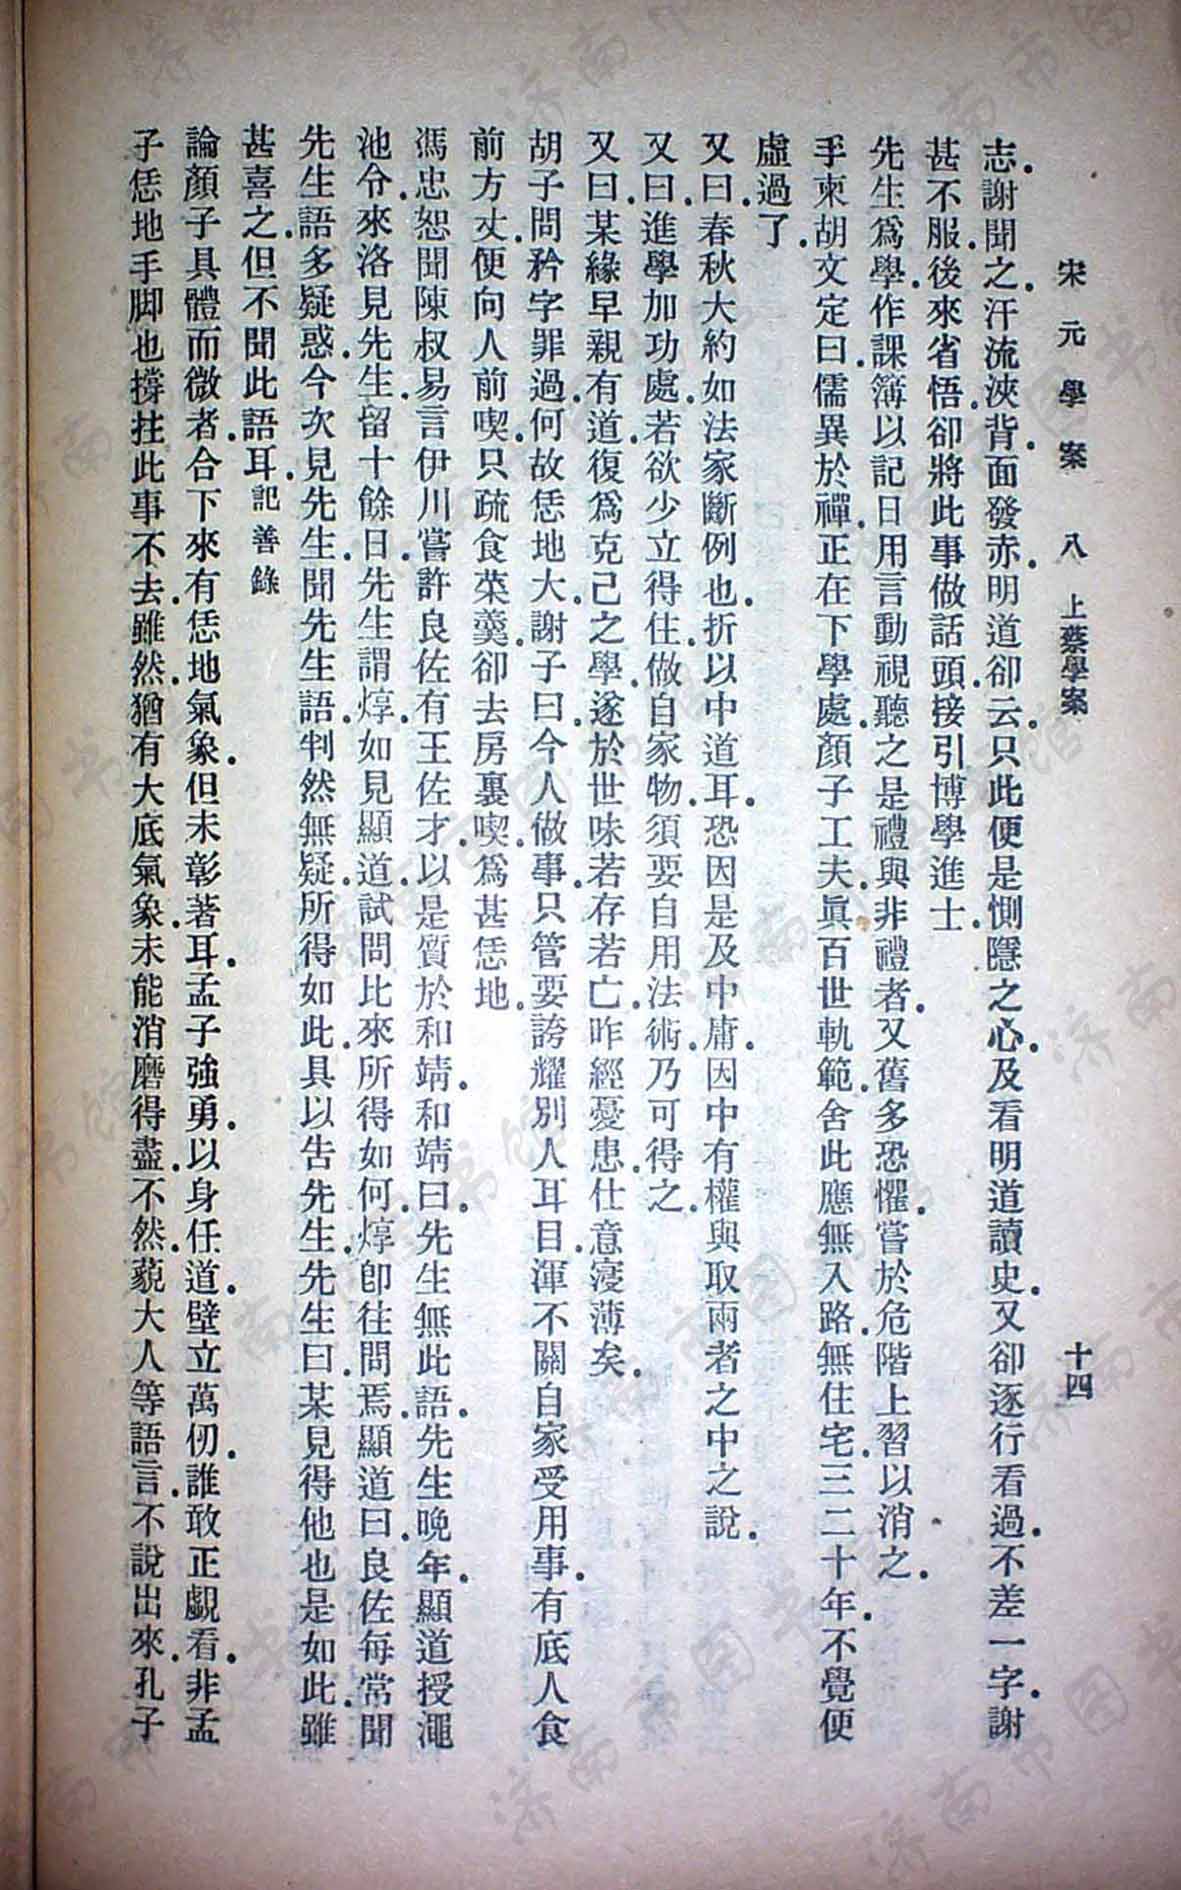 宋元學案 八 上蔡學案 十四
志。謝聞之。汗流浹背。面發赤。明道卻云。只此便是惻隱之心。及看明道讀史。又卻逐行看過。不差一字。謝
甚不服。後來省悟。卻將此事做話頭。接引博學進士。
先生爲學。作課簿以記日用言動視聽之是禮與非禮者。又舊多恐懼。嘗於危階上習以消之。
手柬胡文定曰。儒異於禪。正在下學處。顏子工夫。眞百世軌範。舍此應無入路。無住宅。三二十年。不覺便
虛過了。
又曰。春秋大約如法家斷例也。折以中道耳。恐因是及中庸。因中有權與取兩者之中之說。
又曰。進學加功處。若欲少立得住。做自家物。須要自用法術。乃可得之。
又曰。某緣早親有道。復爲克己之學。遂於世味若存若亡。昨經憂患。仕意寖薄矣。
胡子問矜字罪過。何故恁地大。謝子曰。今人做事。只管要誇耀別人耳目。渾不關自家受用事。有底人食
前方丈。便向人前喫。只疏食菜羹。卻去房裏喫。爲甚恁地。
馮忠恕聞陳叔易言伊川嘗許良佐有王佐才。以是質於和靖。和靖曰。先生無此語。先生晚年。顯道授澠
池令。來洛見先生。留十餘日。先生謂焞。如見顯道。試問比來所得如何。焞卽往問焉。顯道曰。良佐每常聞
先生語多疑惑。今次見先生。聞先生語。判然無疑。所得如此。具以告先生。先生曰。某見得他也是如此。雖
甚喜之。但不聞此語耳。記善錄
論顏子具體而微者。合下來有恁地氣象。但未彰著耳。孟子強勇。以身任道。壁立萬仞。誰敢正覷看。非孟
子恁地手脚。也撐拄此事不去。雖然。猶有大底氣象。未能消磨得盡。不然。藐大人等語言。不說出來。孔子